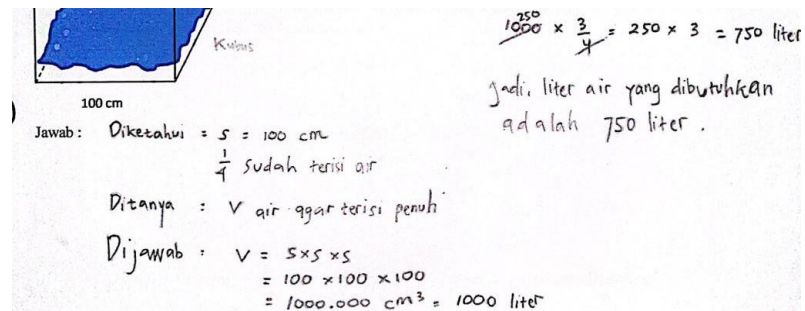 Kubus
100 cm
Jawab : Diketahui : s = 100 cm
1/4 sudah terisi air
Ditanya : V air agar terisi penuh
Dijawab : V = s×s×s
= 100 × 100 × 100
= 1000.000 cm³ = 1000 liter
250
1000 × 3/4 = 250 × 3 = 750 liter
Jadi, liter air yang dibutuhkan
adalah 750 liter.